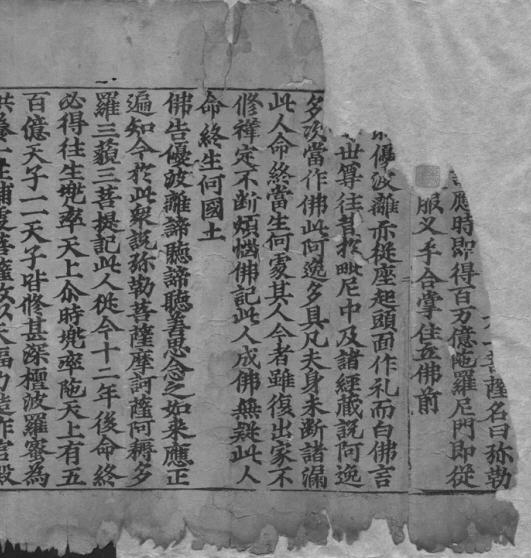 一菩薩名曰弥勒
應時即得百万億陁羅尼門即從
服叉手合掌住立佛前
優波離亦從座起頭面作礼而白佛言
世尊往昔於毗尼中及諸經藏說阿逸
多次當作佛此阿逸多具凡夫身未斷諸漏
此人命終當生何處其人今者雖復出家不
修禅定不断煩惱佛記此人成佛無疑此人
命終生何國土
佛告優波離諦聽諦聽善思念之如来應正
遍知今於此衆説弥勒菩薩摩訶薩阿耨多
羅三藐三菩提記此人從今十二年後命終
必得往生兜率天上尒時兜率陁天上有五
百億天子一一天子皆修甚深檀波羅蜜為